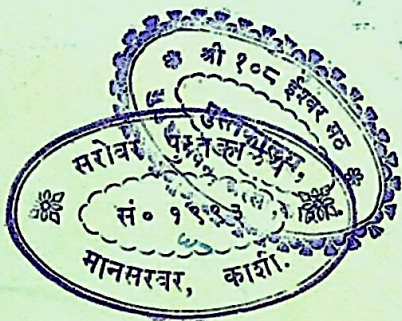 श्री १०८ ईश्वर मठ
पुस्तकालय,
सरोवर पुस्तकालय
सं० १९९३
मानसरवर, काशी.